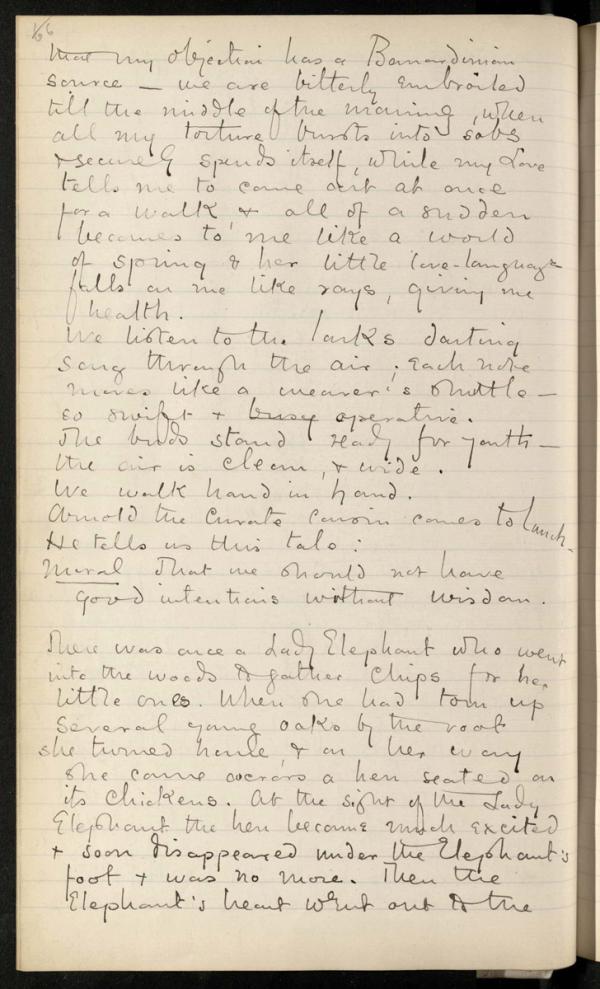 that my objection has a Bernardinian
source — we are bitterly embroiled
till the middle of the morning, when
all my torture bursts into sobs
& securely spends itself, while my Love
tells me to come out at once
for a walk, & all of a sudden
becomes to me like a world
of spring & her little love-language
falls on me like rays, giving me
health.
We listen to the larks darting
song through the air; each note
moves like a weaver's shuttle —
so swift & busy operative.
The buds stand ready for youth —
the air is clean, & wide.
We walk hand in hand.
Arnold the Curate cousin comes to lunch —
He tells us this tale:
Moral That we should not have
good intentions without wisdom.
There was once a Lady Elephant who went
into the woods to gather chips for her
little ones. When she had torn up
several young oaks by the root
she turned home, & on her way
she came across a hen seated on
its chickens. At the sight of the Lady
Elephant the hen became much excited
& soon disappeared under the Elephant's
foot & was no more. Then the
Elephant's heart went out to the